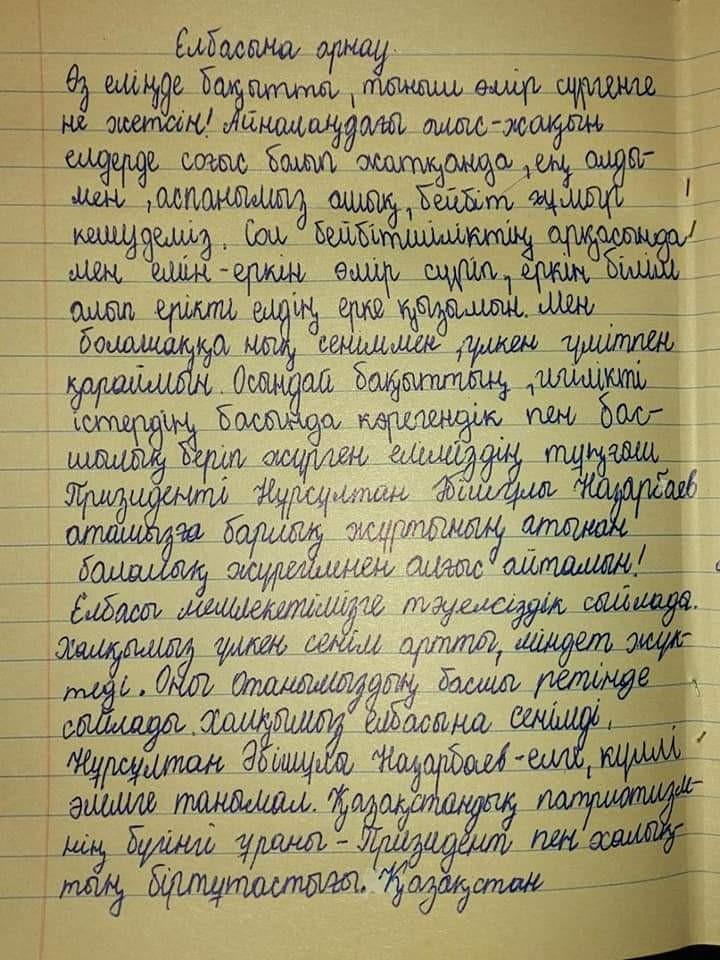 Елбасына арнау.
Өз еліңде бақытты, тыныш өмір сүргенге
не жетсін! Айналаңдағы алыс-жақын
елдерде соғыс болып жатқанда, ең алды-
мен, аспанымыз ашық, бейбіт ғұмыр
кешудеміз. Сол бейбітшіліктің арқасында
мен еңін-еркін өмір сүріп, еркін білім
алып ерікті елдің ерке қызымын. Мен
болашаққа нық сеніммен, үлкен үмітпен
қараймын. Осындай бақыттың, игілікті
істердің басында көрегендік пен бас-
шылық беріп жүрген еліміздің тұңғыш
Призиденті Нұрсұлтан Әбішұлы Назарбаев
атамызға барлық жұртының атынан
балалық жүрегімнен алғыс айтамын!
Елбасы мемлекетімізге тәуелсіздік сыйлада.
Халқымыз үлкен сенім артты, міндет жүк-
теді. Оны Отанымыздың басшы ретінде
сыйлады. Халқымыз елбасына сенімді.
Нұрсұлтан Әбішұлы Назарбаев-елге, күллі
әлемге танымал. Қазақстандық патриотизм-
нің бүгінгі ұраны - Призидент пен халық-
тың біртұтастығы. Қазақстан